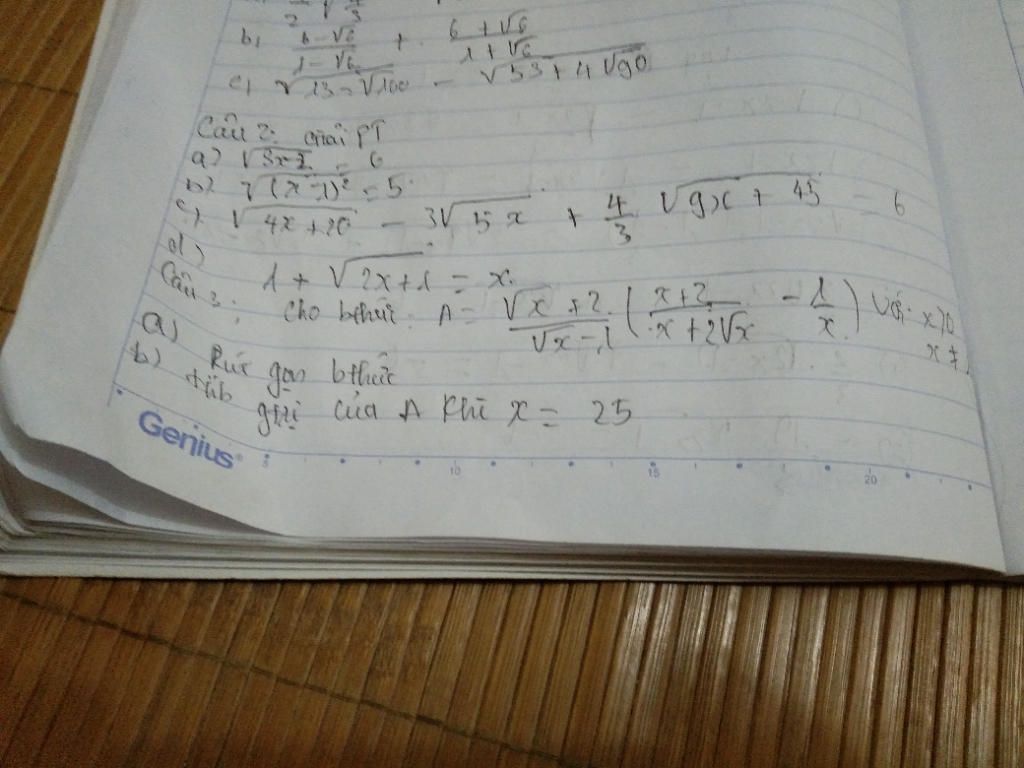 b, \frac{6-√6}{1-√6} + \frac{6+√6}{1+√6}
c, √(13-√160) - √(53+4√90)
Câu 2: Giải PT
a) √(3x-1) = 6
b) √((x-1)²) = 5
c, √(4x+20) - 3√(5 x) + \frac{4}{3} √(9x+45) = 6
d) 1 + √(2x+1) = x
Câu 3: Cho bthức: A = \frac{√x+2}{√x-1} ( \frac{x+2}{x+2√x} - \frac{1}{x} ) Với x>0
x ≠ 1
a) Rút gọn bthức
b) gtri của A khi x = 25
Genius
5 10 15 20